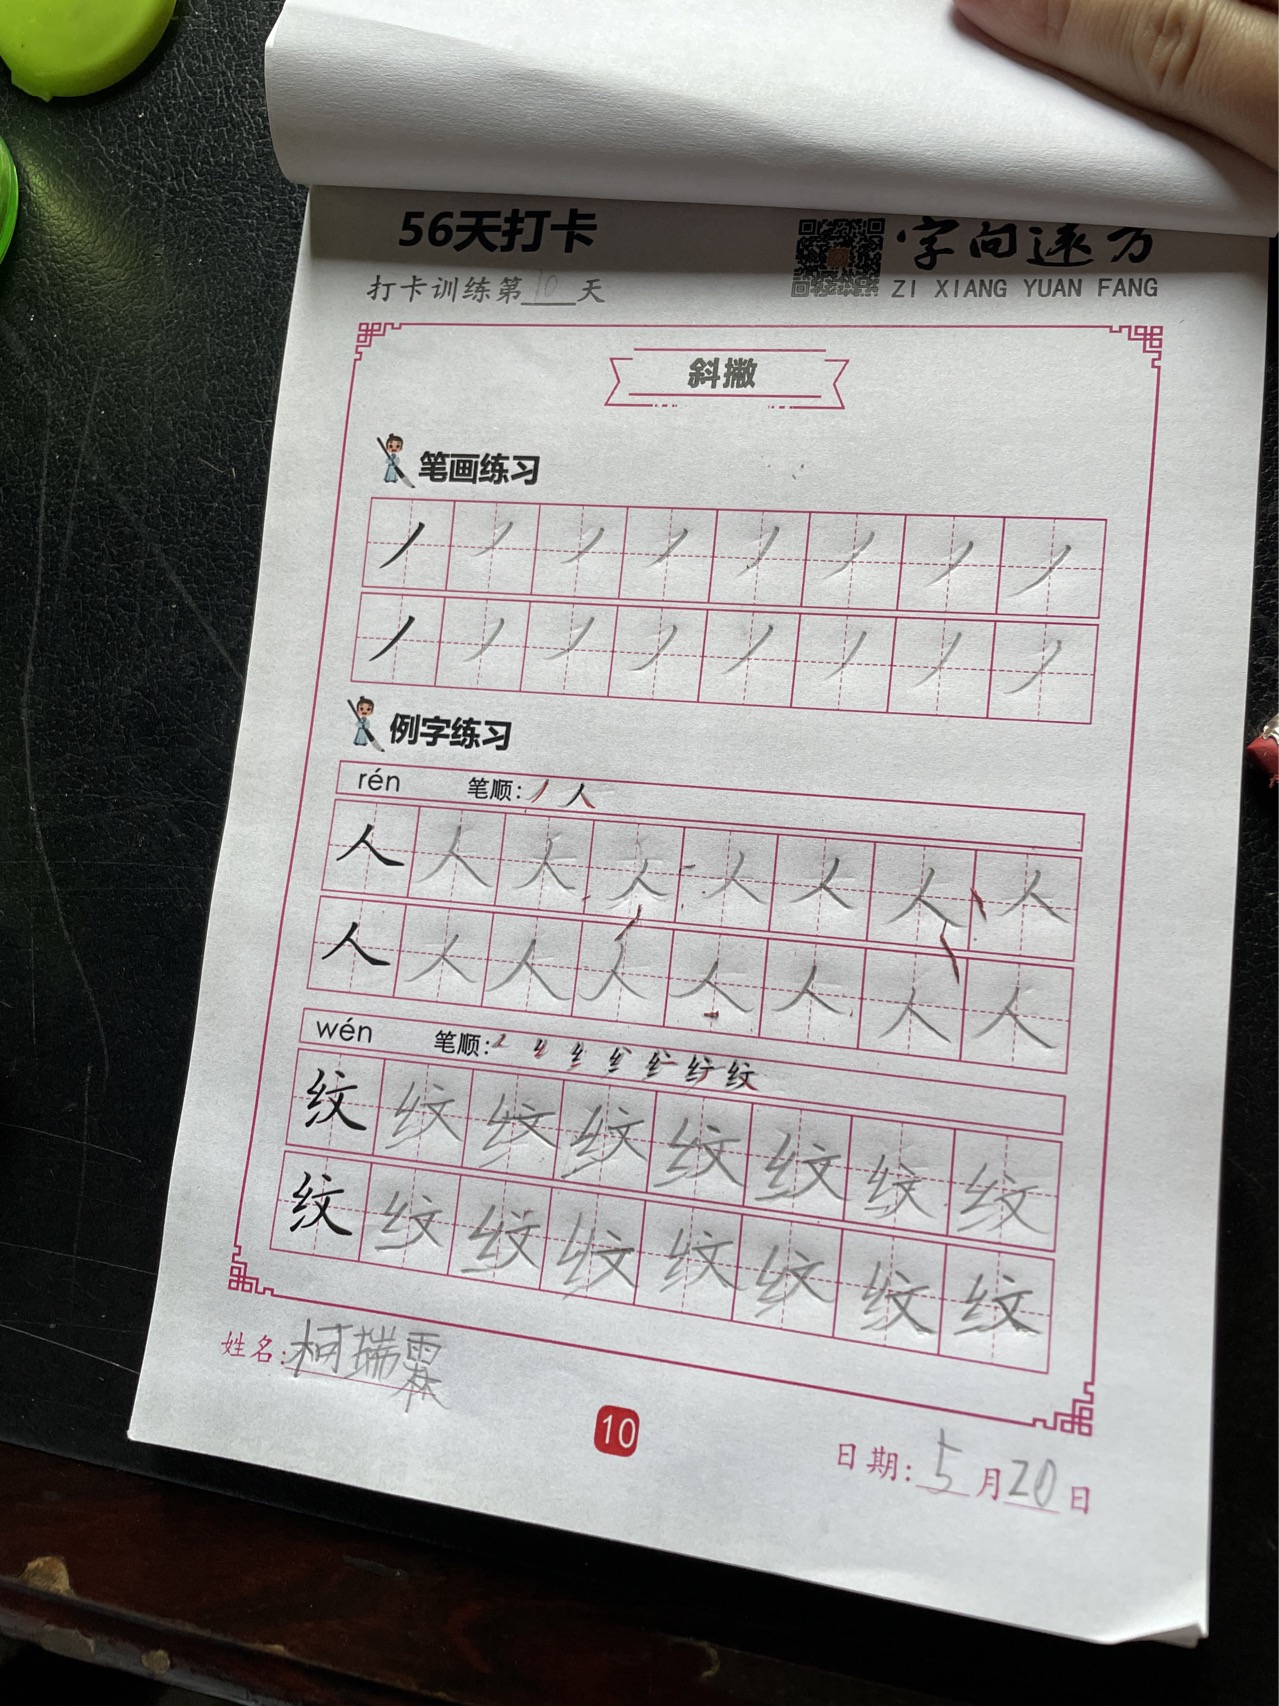 56天打卡
打卡训练第10天
ZI XIANG YUAN FANG
斜撇
笔画练习
丿丿丿丿丿丿丿丿
丿丿丿丿丿丿丿丿
例字练习
rén 笔顺：丿 人
人人人人人人人人
人人人人人人人人
wén 笔顺：
纹纹纹纹纹纹纹纹
纹纹纹纹纹纹纹纹
姓名：柯瑞霖
10
日期：5月20日